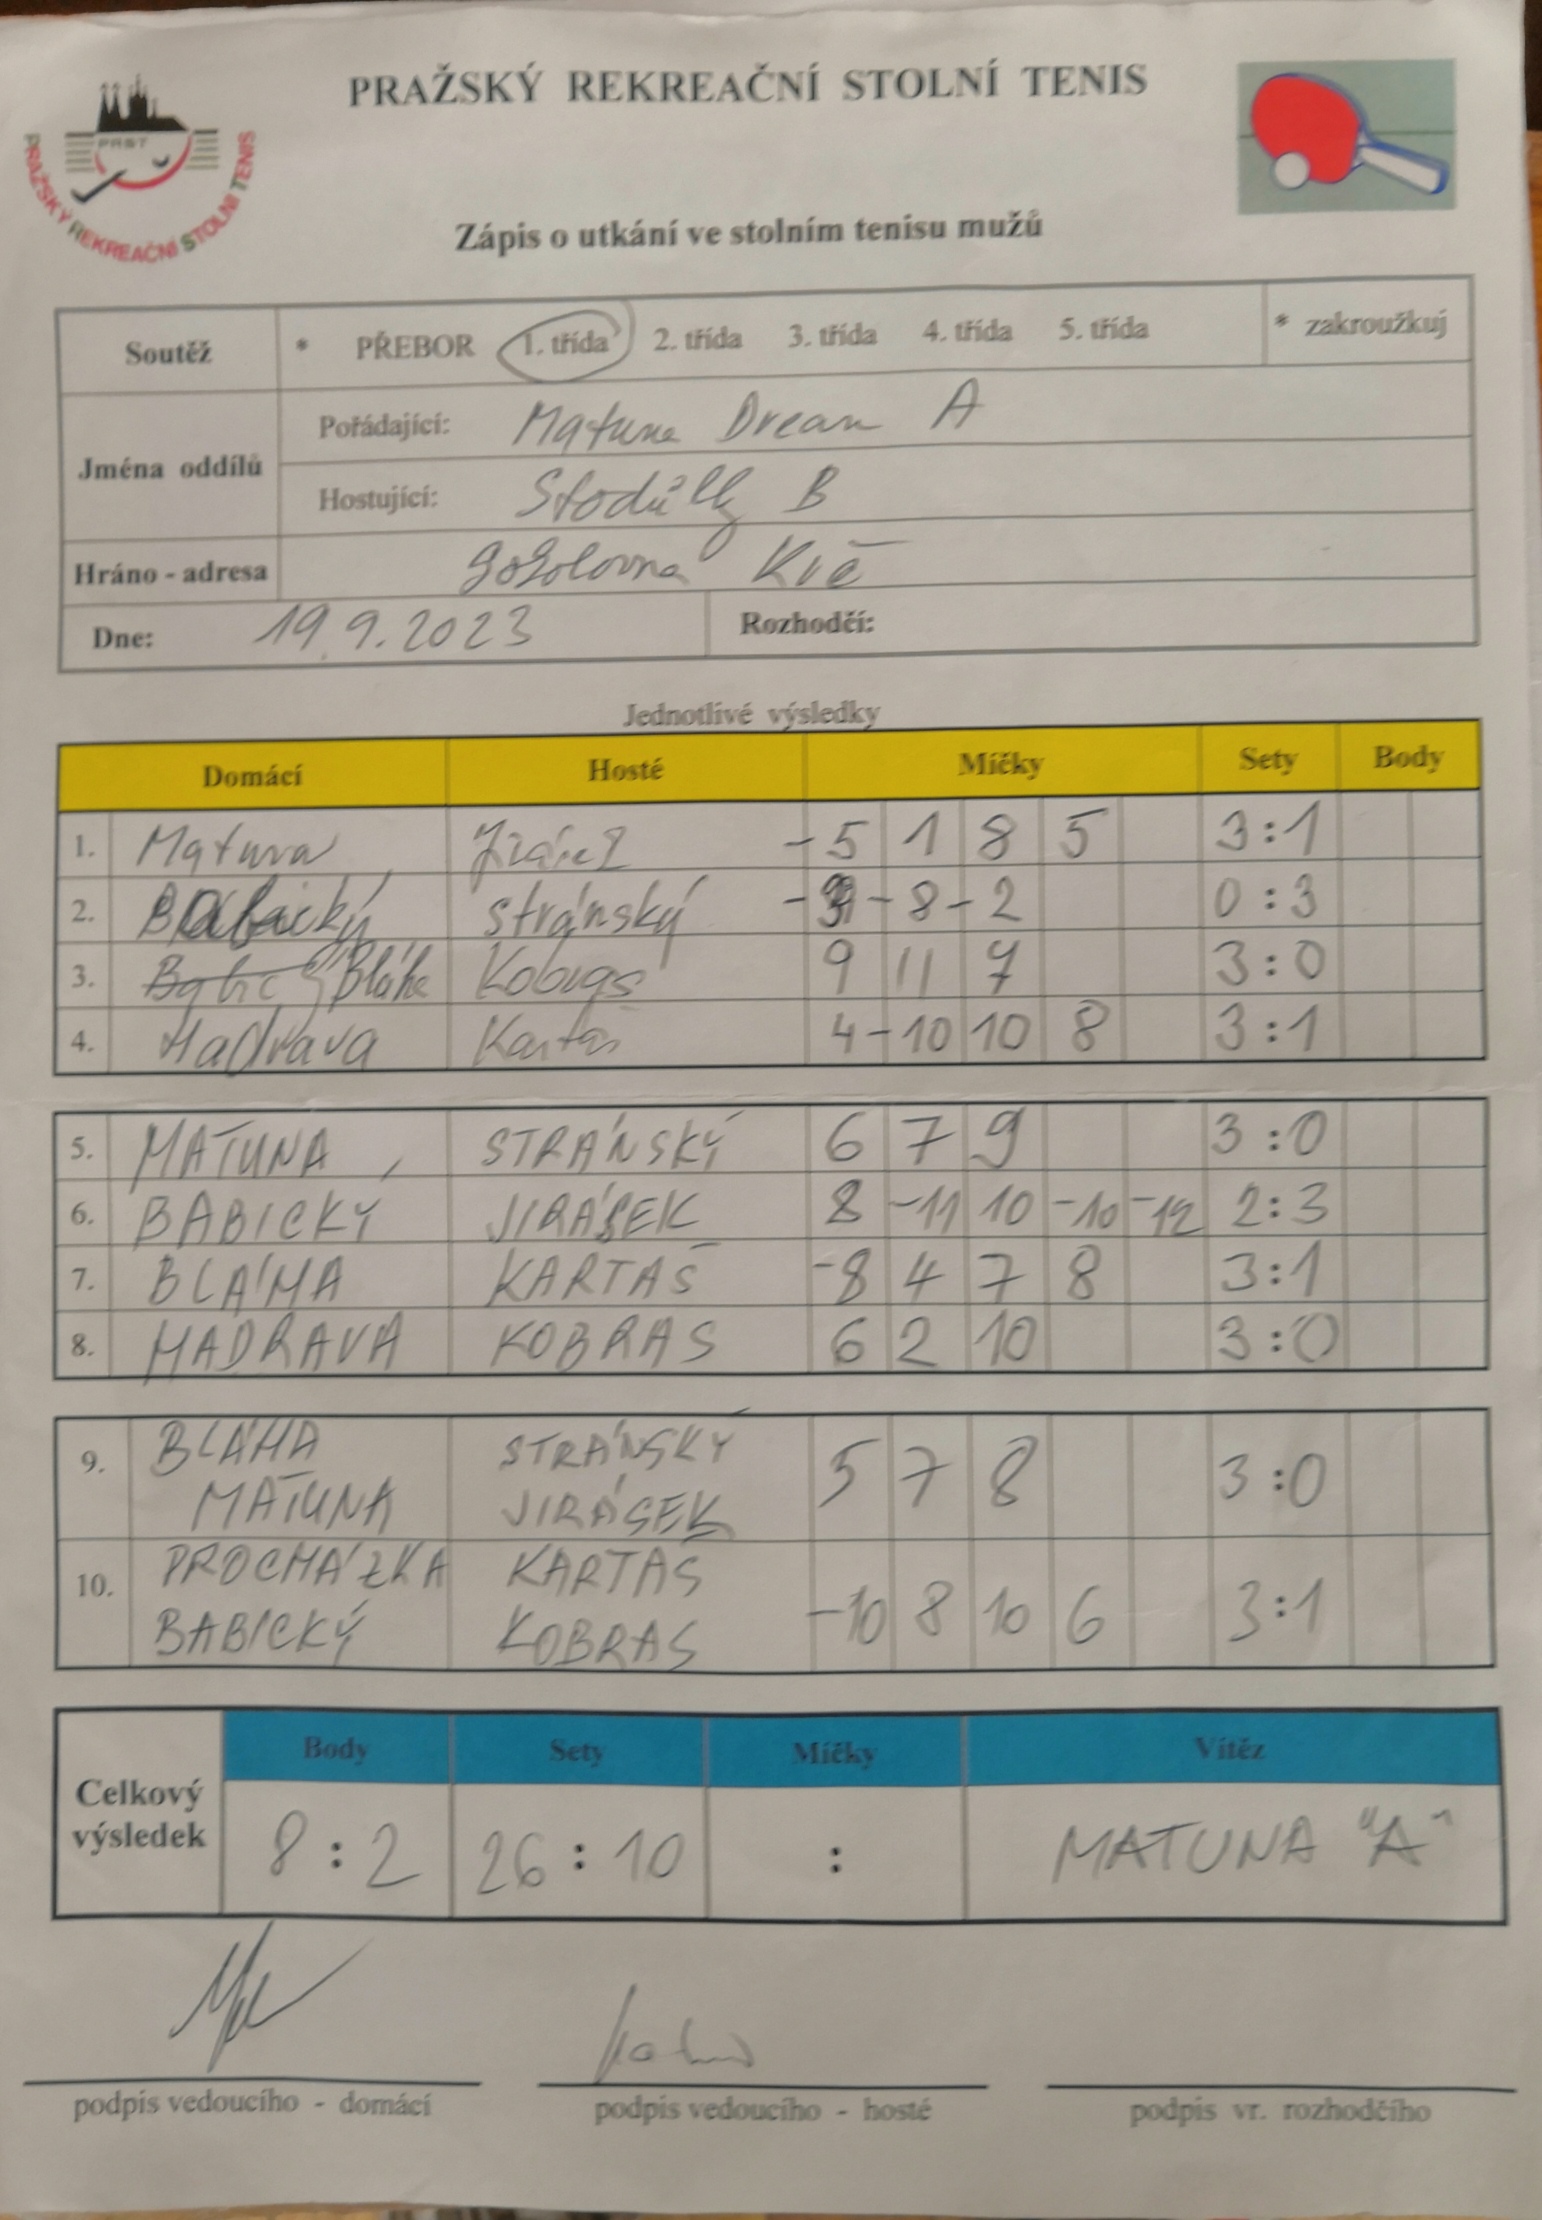 PRAŽSKÝ REKREAČNÍ STOLNÍ TENIS
PRST
PRAŽSKÝ REKREAČNÍ STOLNÍ TENIS
Zápis o utkání ve stolním tenisu mužů
Soutěž * PŘEBOR 1. třída 2. třída 3. třída 4. třída 5. třída * zakroužkuj
Jména oddílů
Pořádající: Matuna Dream A
Hostující: Stodůlky B
Hráno - adresa
Dne: 19.9.2023 Rozhodčí:
Jednotlivé výsledky
Domácí Hosté Míčky Sety Body
1. Matuna -5 1 8 5 3:1
2. Babický Stránský -8 -2 0:3
3. Bláha Kobras 9 11 7 3:0
4. Madrava Kartas 4 -10 10 8 3:1
5. MATUNA, STRÁNSKÝ 6 7 9 3:0
6. BABICKÝ JIRÁSEK 8 -11 10 -10 -12 2:3
7. BLÁHA KARTAS -8 4 7 8 3:1
8. MADRAVA KOBRAS 6 2 10 3:0
9. BLÁHA STRÁNSKÝ 5 7 8 3:0
MATUNA JIRÁSEK
10. PROCHÁZKA KARTAS -10 8 10 6 3:1
BABICKÝ KOBRAS
Celkový výsledek
Body Sety Míčky Vítěz
8:2 26:10 : MATUNA "A"
podpis vedoucího - domácí podpis vedoucího - hosté podpis vr. rozhodčího